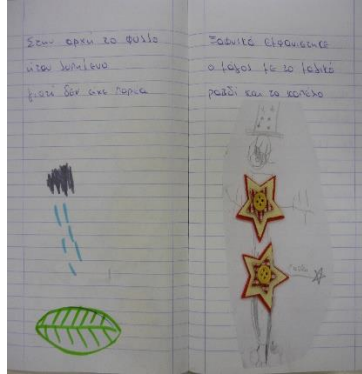 Στην αρχη το φυλλο
ήταν λυπημένο
γιατί δεν είχε παρεα
Ξαφνικά εμφανιστηκε
ο μάγος με το μαγικό
ραβδί και το καπέλο